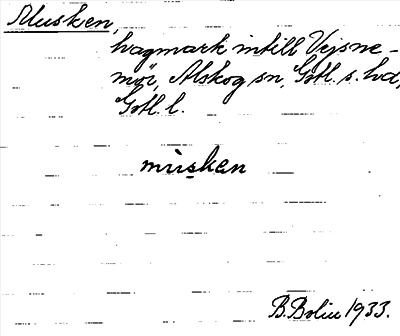 Musken,
hagmark intill Vejsne-
moi, Alskog sn, Gotl. s. hd,
Gotl. l.
mùskan
B. Bolin 1933.